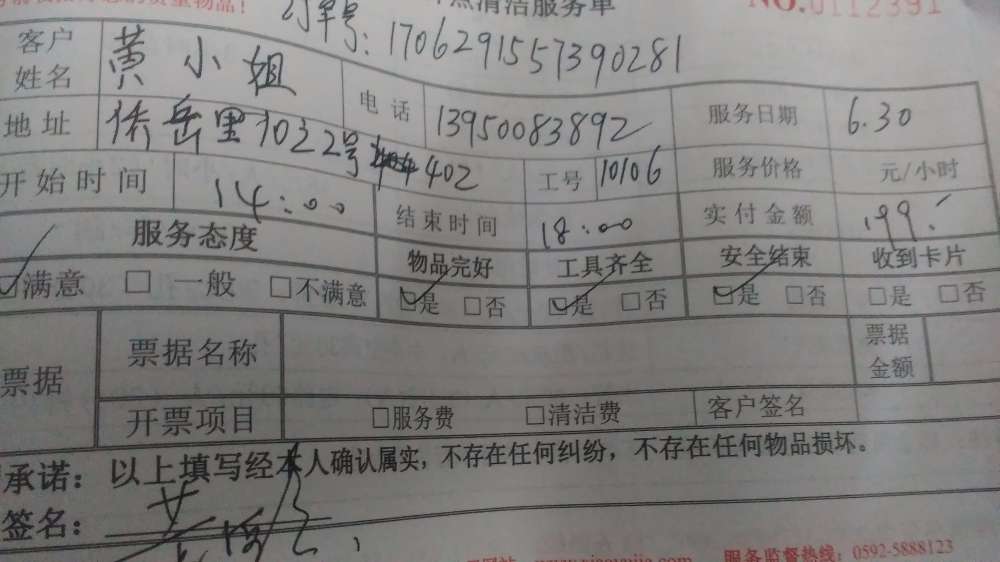 清洁服务单 NO.0112391
订单号:1706291557390281
客户姓名 黄小姐 电话 13950083892 服务日期 6.30
地址 岳里1032号 402 工号 10106 服务价格 元/小时
开始时间 14:00 结束时间 18:00 实付金额 199.
服务态度 物品完好 工具齐全 安全结束 收到卡片
满意 □ 一般 □不满意 是 □否 是 □否 是 □否 □是 □否
票据 票据名称 票据金额
开票项目 □服务费 □清洁费 客户签名
承诺:以上填写经本人确认属实,不存在任何纠纷,不存在任何物品损坏。
签名:
服务监督热线:0592-5888123